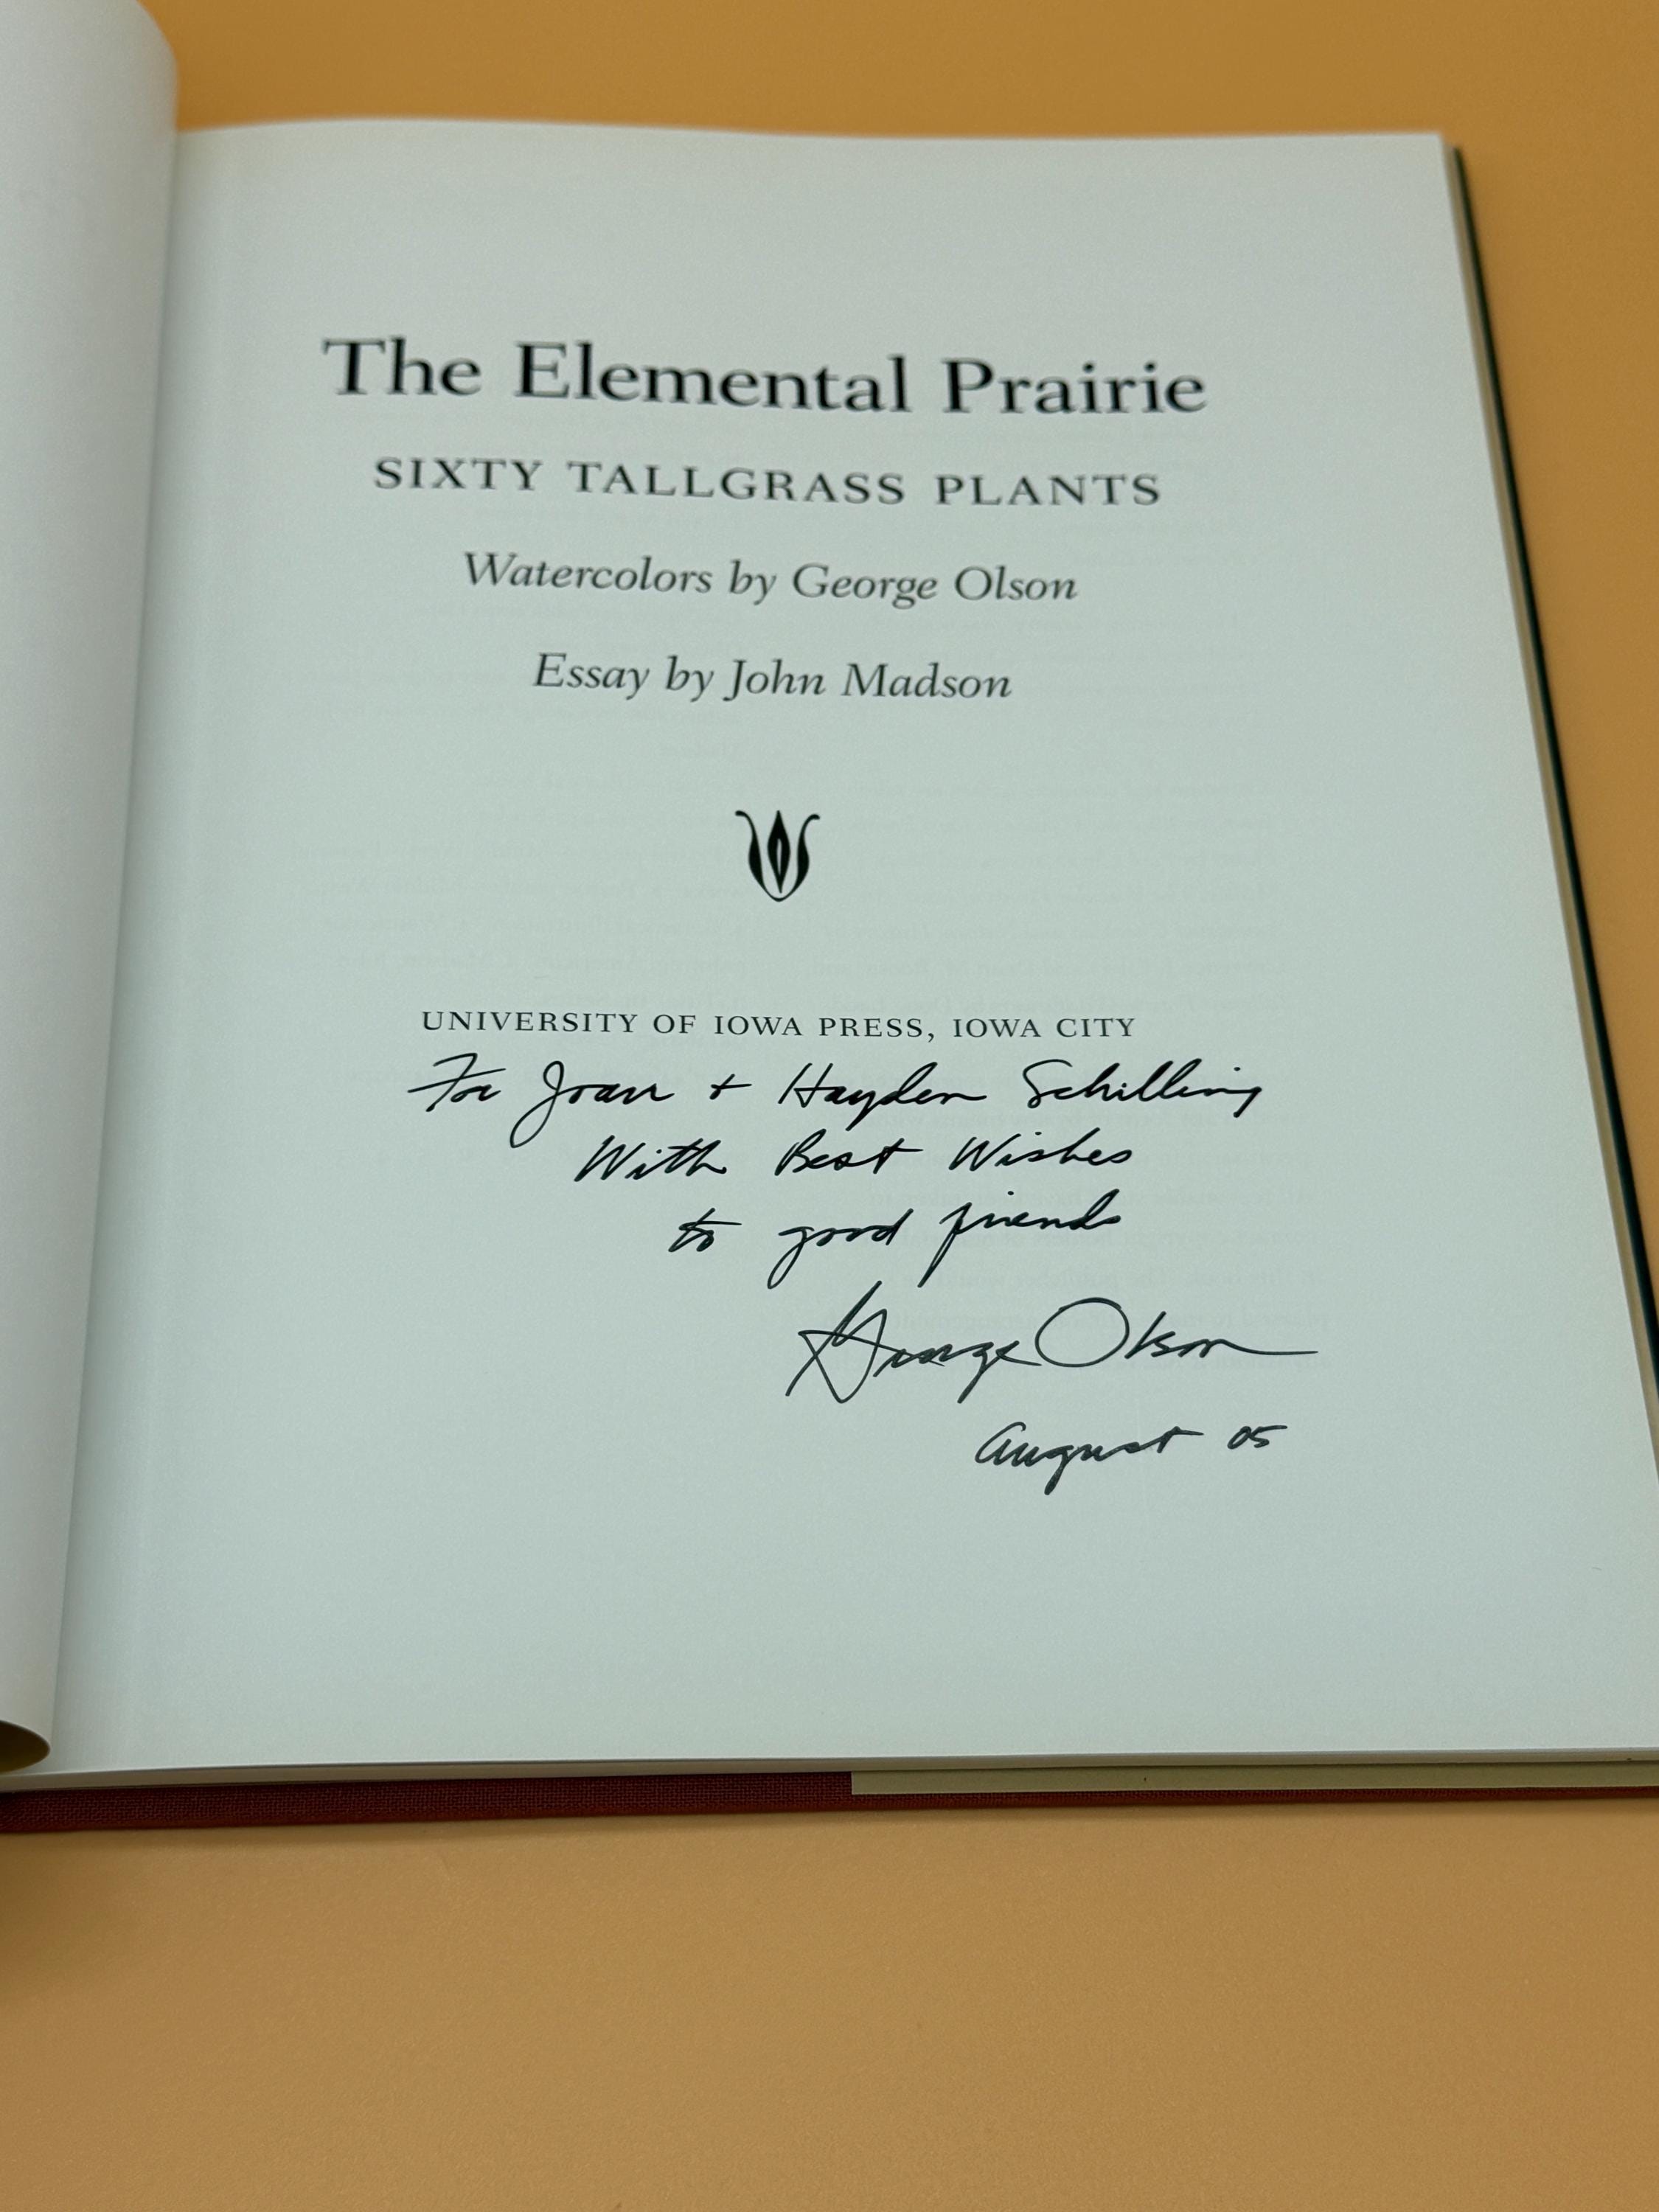 The Elemental Prairie
SIXTY TALLGRASS PLANTS
Watercolors by George Olson
Essay by John Madson
UNIVERSITY OF IOWA PRESS, IOWA CITY
For Joan + Hayden Schilling
With Best Wishes
to good friends
George Olson
August 05